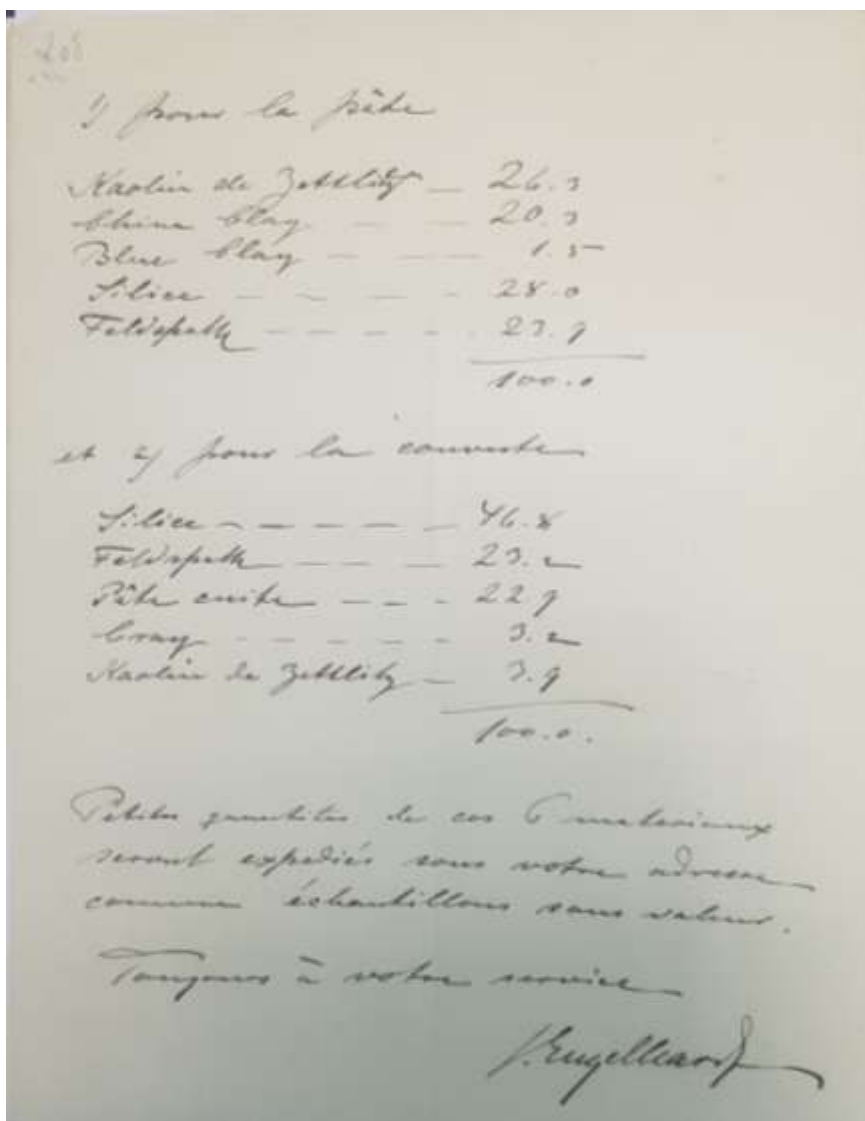 1) pour la pâte
Kaolin de Zettlitz — 26.3
China Clay — — 20.3
Blue Clay — — — 1.5
Silice — — — — 28.0
Feldspath — — — — 23.9
100.0
et 2) pour la couverte
Silice — — — — — 46.8
Feldspath — — — 23.2
Pâte cuite — — — 22 9
Cray — — — — — 3.2
Kaolin de Zettlitz — 3.9
100.0.
Petites quantites de ces 6 materiaux
seront expediés sous votre adresse
comme échantillons sans valeur.
Toujours à votre service
Engelhardt